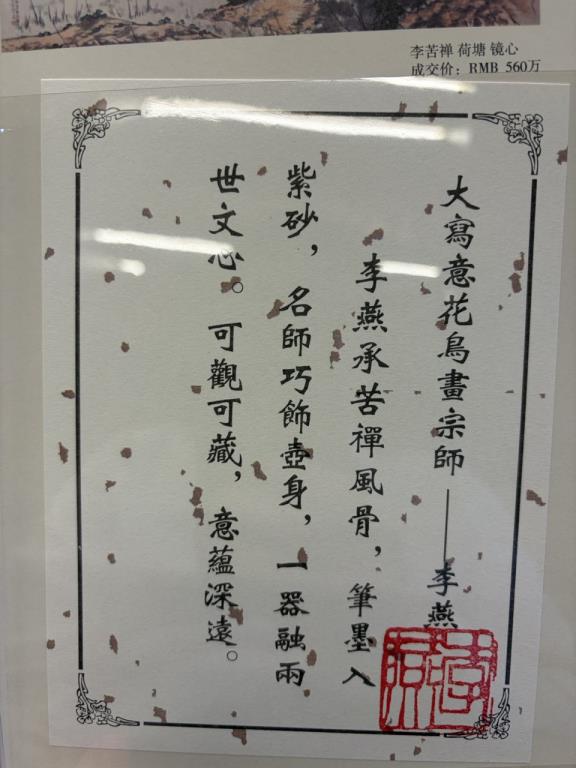 李苦禅 荷塘 镜心
成交价：RMB 560万
大寫意花鳥畫宗師——李燕
李燕承苦禪風骨，筆墨入
紫砂，名師巧飾壺身，一器融兩
世文心。可觀可藏，意蘊深遠。